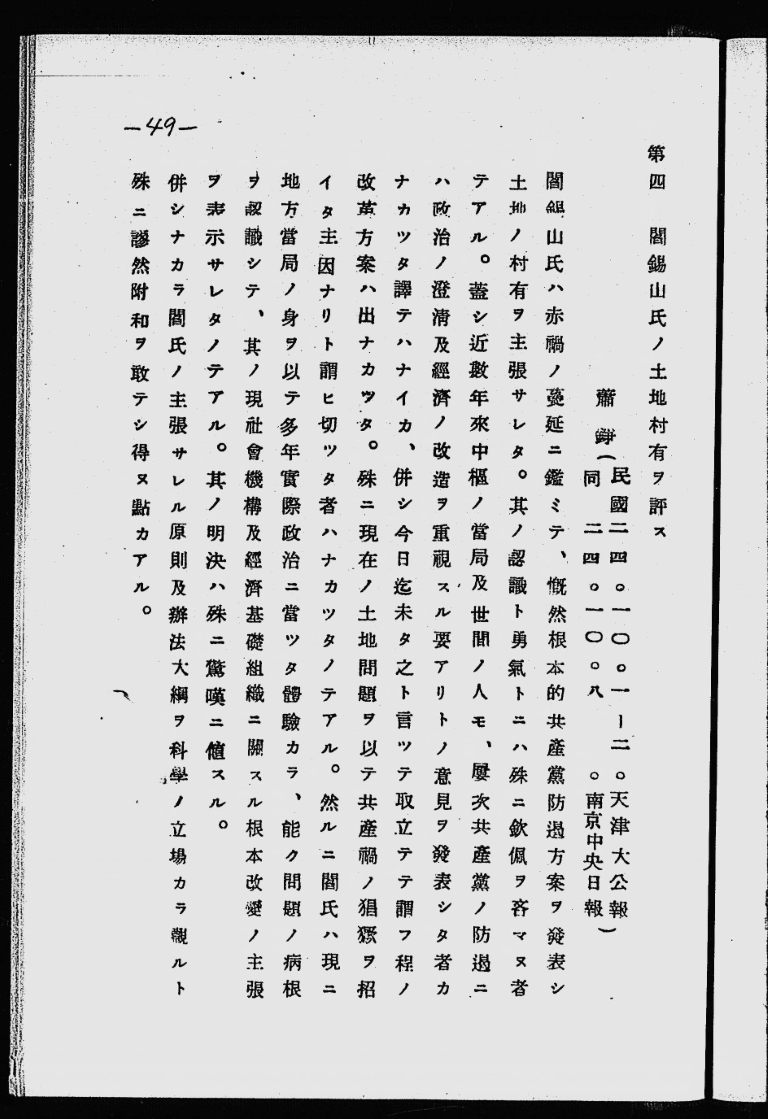 第四　閻錫山氏ノ土地村有ヲ評ス
蕭錚(民國二四。一〇。一ー二。天津大公報)
同　二四。一〇。八　。南京中央日報
閻錫山氏ハ赤禍ノ蔓延ニ鑑ミテ、慨然根本的共產黨防遏方案ヲ發表シ
土地ノ村有ヲ主張サレタ。其ノ認識ト勇氣トニハ殊ニ欽佩ヲ吝マヌ者
テアル。蓋シ近數年來中樞ノ當局及世間ノ人モ、屢次共產黨ノ防遏ニ
ハ政治ノ澄清及經濟ノ改造ヲ重視スル要アリトノ意見ヲ發表シタ者カ
ナカツタ譯テハナイカ、併シ今日迄未タ之ト言ツテ取立テテ謂フ程ノ
改革方案ハ出ナカツタ。殊ニ現在ノ土地問題ヲ以テ共產禍ノ猖獗ヲ招
イタ主因ナリト謂ヒ切ツタ者ハナカツタノテアル。然ルニ閻氏ハ現ニ
地方當局ノ身ヲ以テ多年實際政治ニ當ツタ體驗カラ、能ク問題ノ病根
ヲ認識シテ、其ノ現社會機構及經濟基礎組織ニ關スル根本改變ノ主張
ヲ表示サレタノテアル。其ノ明決ハ殊ニ驚嘆ニ値スル。
併シナカラ閻氏ノ主張サレル原則及辦法大綱ヲ科學ノ立場カラ觀ルト
殊ニ謬然附和ヲ敢テシ得ヌ點カアル。
—49—